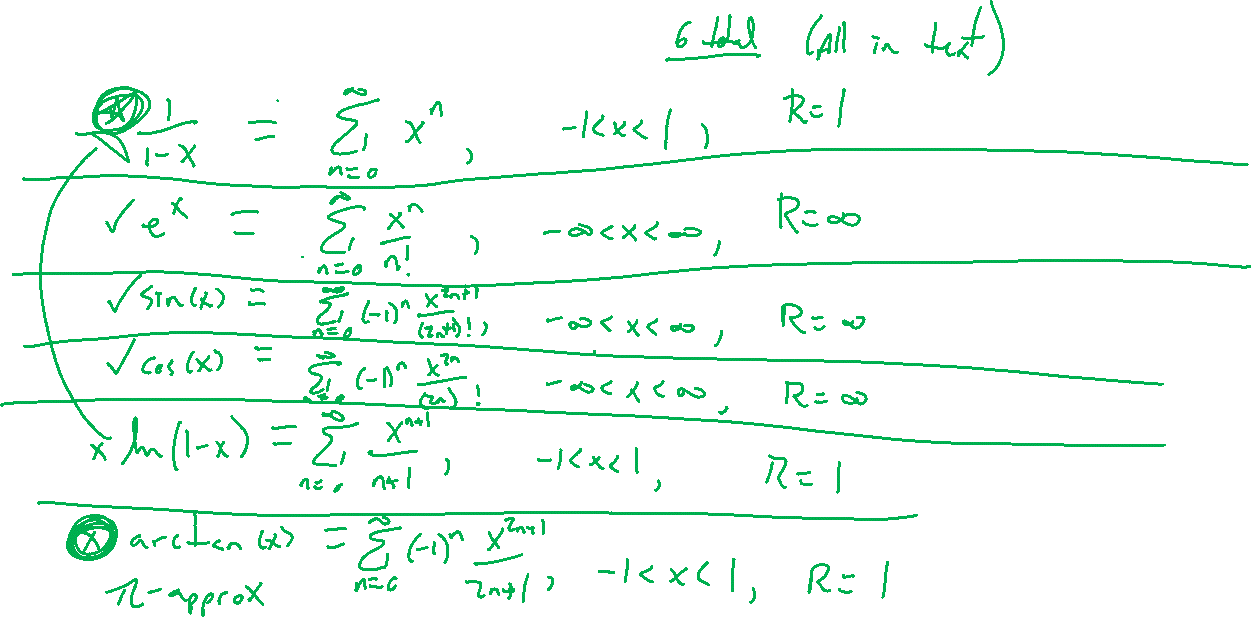 6 total (All in text)
1/(1-x) = ∑_{n=0}^{∞} x^n, -1<x<1, R=1
✓ e^x = ∑_{n=0}^{∞} x^n/n!, -∞<x<∞, R=∞
✓ sin(x) = ∑_{n=0}^{∞} (-1)^n x^{2n+1}/(2n+1)!, -∞<x<∞, R=∞
✓ cos(x) = ∑_{n=0}^{∞} (-1)^n x^{2n}/(2n)!, -∞<x<∞, R=∞
x ln(1-x) = ∑_{n=0}^{∞} x^{n+1}/(n+1), -1<x<1, R=1
x arctan(x) = ∑_{n=0}^{∞} (-1)^n x^{2n+1}/(2n+1), -1<x<1, R=1
π-approx